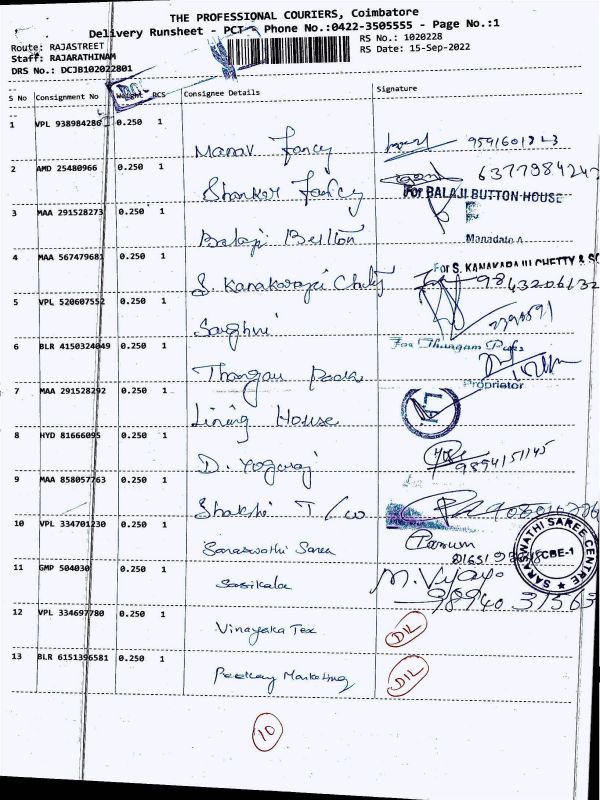 THE PROFESSIONAL COURIERS, Coimbatore
Delivery Runsheet - PCT - Phone No.:0422-3505555 - Page No.:1
Route: RAJASTREET
RS No.: 1020228
Staff: RAJARATHINAM
RS Date: 15-Sep-2022
DRS No.: DCJB102022801
S No Consignment No Weight PCS Consignee Details Signature
1 VPL 938984286 0.250 1 Manav Fancy
2 AMD 25480966 0.250 1 Shanker Fancy
For BALAJI BUTTON HOUSE
3 MAA 291528273 0.250 1 Balaji Button
4 MAA 567479681 0.250 1 S. Kanakaraju Chetty
For S. KANAKARAJU CHETTY & SO
9843206132
5 VPL 520607552 0.250 1
6 BLR 4150324049 0.250 1 Thangam
For Thangam
Proprietor
7 MAA 291528292 0.250 1 Lining House
8 HYD 81666095 0.250 1 D. Yogaraj 9894151145
9 MAA 858057763 0.250 1 Shakthi T/co
10 VPL 334701230 0.250 1 Saraswathi Saree
SARASWATHI SAREE CENTRE
CBE-1
11 GMP 504030 0.250 1 Sasikala
12 VPL 334697780 0.250 1 Vinayaka Tex DIL
13 BLR 6151396581 0.250 1 Peekay Marketing DIL
10